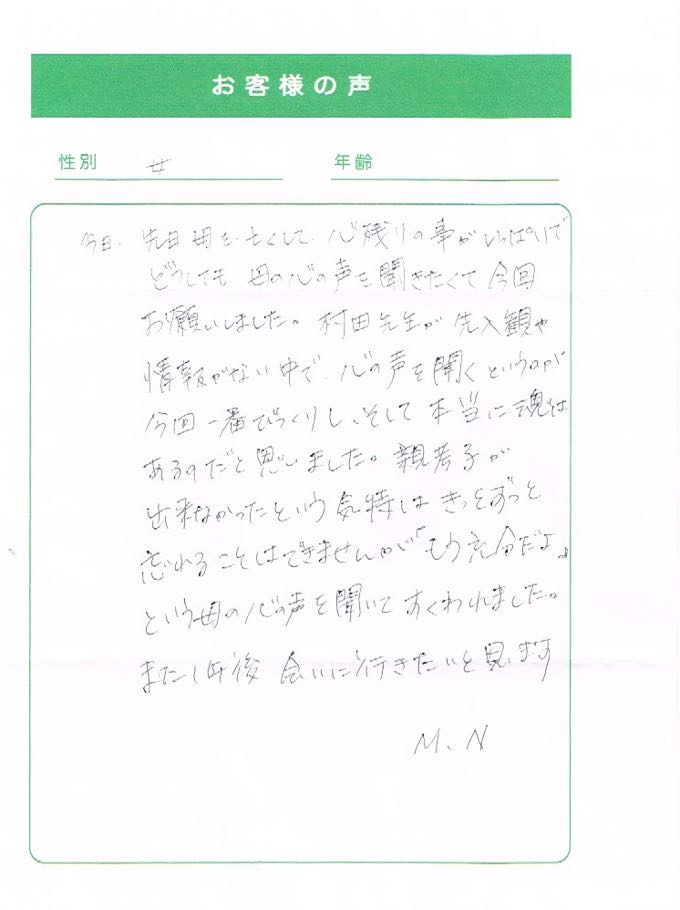 お客様の声
性別 女 年齢
今日、先日母を亡くして、心残りの事がいっぱいで
どうしても 母の心の声を聞きたくて今回
お願いしました。村田先生が先入観や
情報がない中で、心の声を聞くというのが
今回一番びっくりし、そして本当に魂は
あるのだと思いました。親孝子が
出来なかったという気持ちは きっとずっと
忘れることはできませんが「もう充分だよ」
という母の心の声を聞いて すくわれました。
また1年後 会いに行きたいと思います
M、N